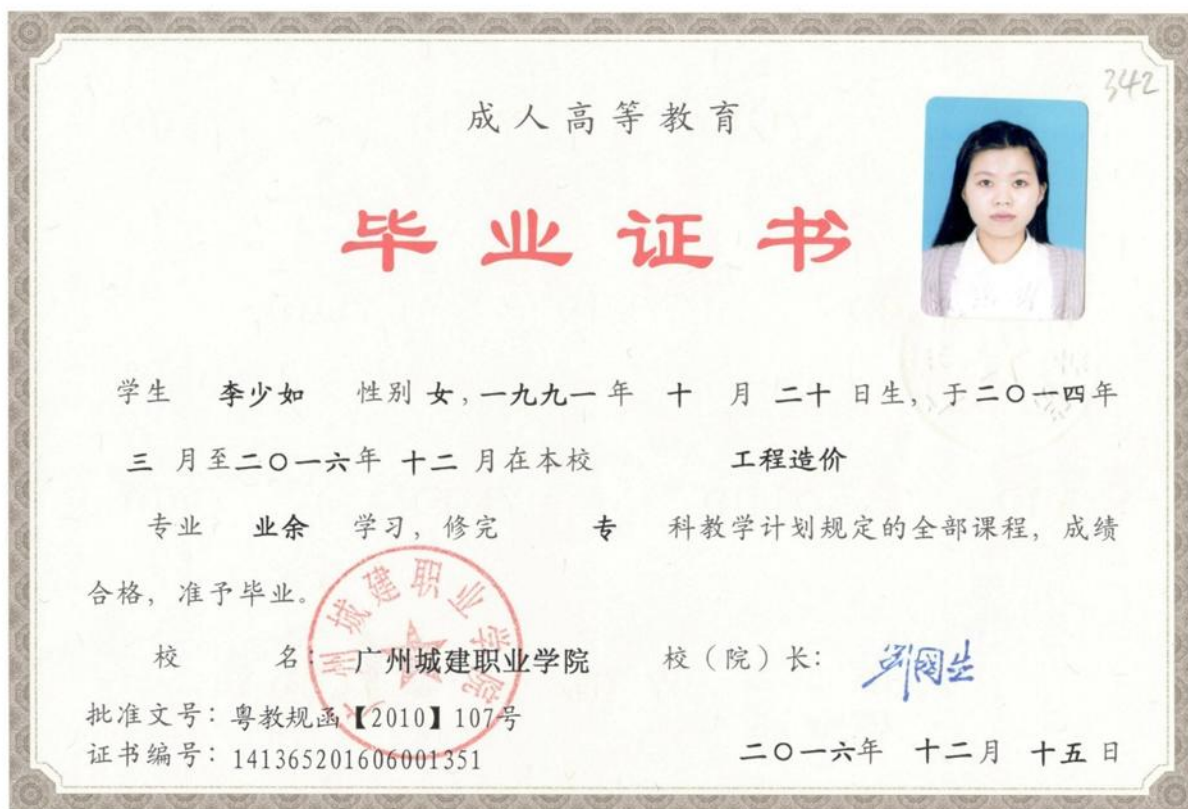 342
成人高等教育
毕业证书
学生 李少如 性别 女，一九九一 年 十 月 二十 日生，于二〇一四年
三 月至二〇一六年 十二 月在本校 工程造价
专业 业余 学习，修完 专 科教学计划规定的全部课程，成绩
合格，准予毕业。
广州城建职业学院
校 名：广州城建职业学院 校（院）长：刘国生
批准文号：粤教规函【2010】107号
证书编号：141365201606001351
二〇一六年 十二月 十五日